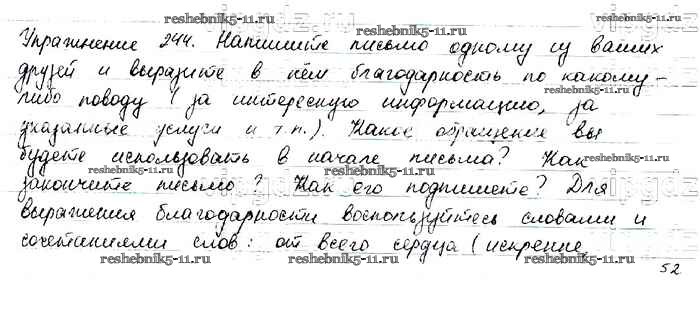 reshebnik5-11.ru reshebnik5-11.ru
Упражнение 244. Напишите письмо одному из ваших
друзей и выразите в нём благодарность по какому-
reshebnik5-11.ru
либо поводу (за интересную информацию, за
указанные услуги и т.п.). Какое обращение вы
reshebnik5-11.ru reshebnik5-11.ru
будете использовать в начале письма? Как
закончите письмо? Как его подпишете? Для
выражения благодарности воспользуйтесь словами и
reshebnik5-11.ru
сочетаниями слов: от всего сердца (искренне,
reshebnik5-11.ru reshebnik5-11.ru
52